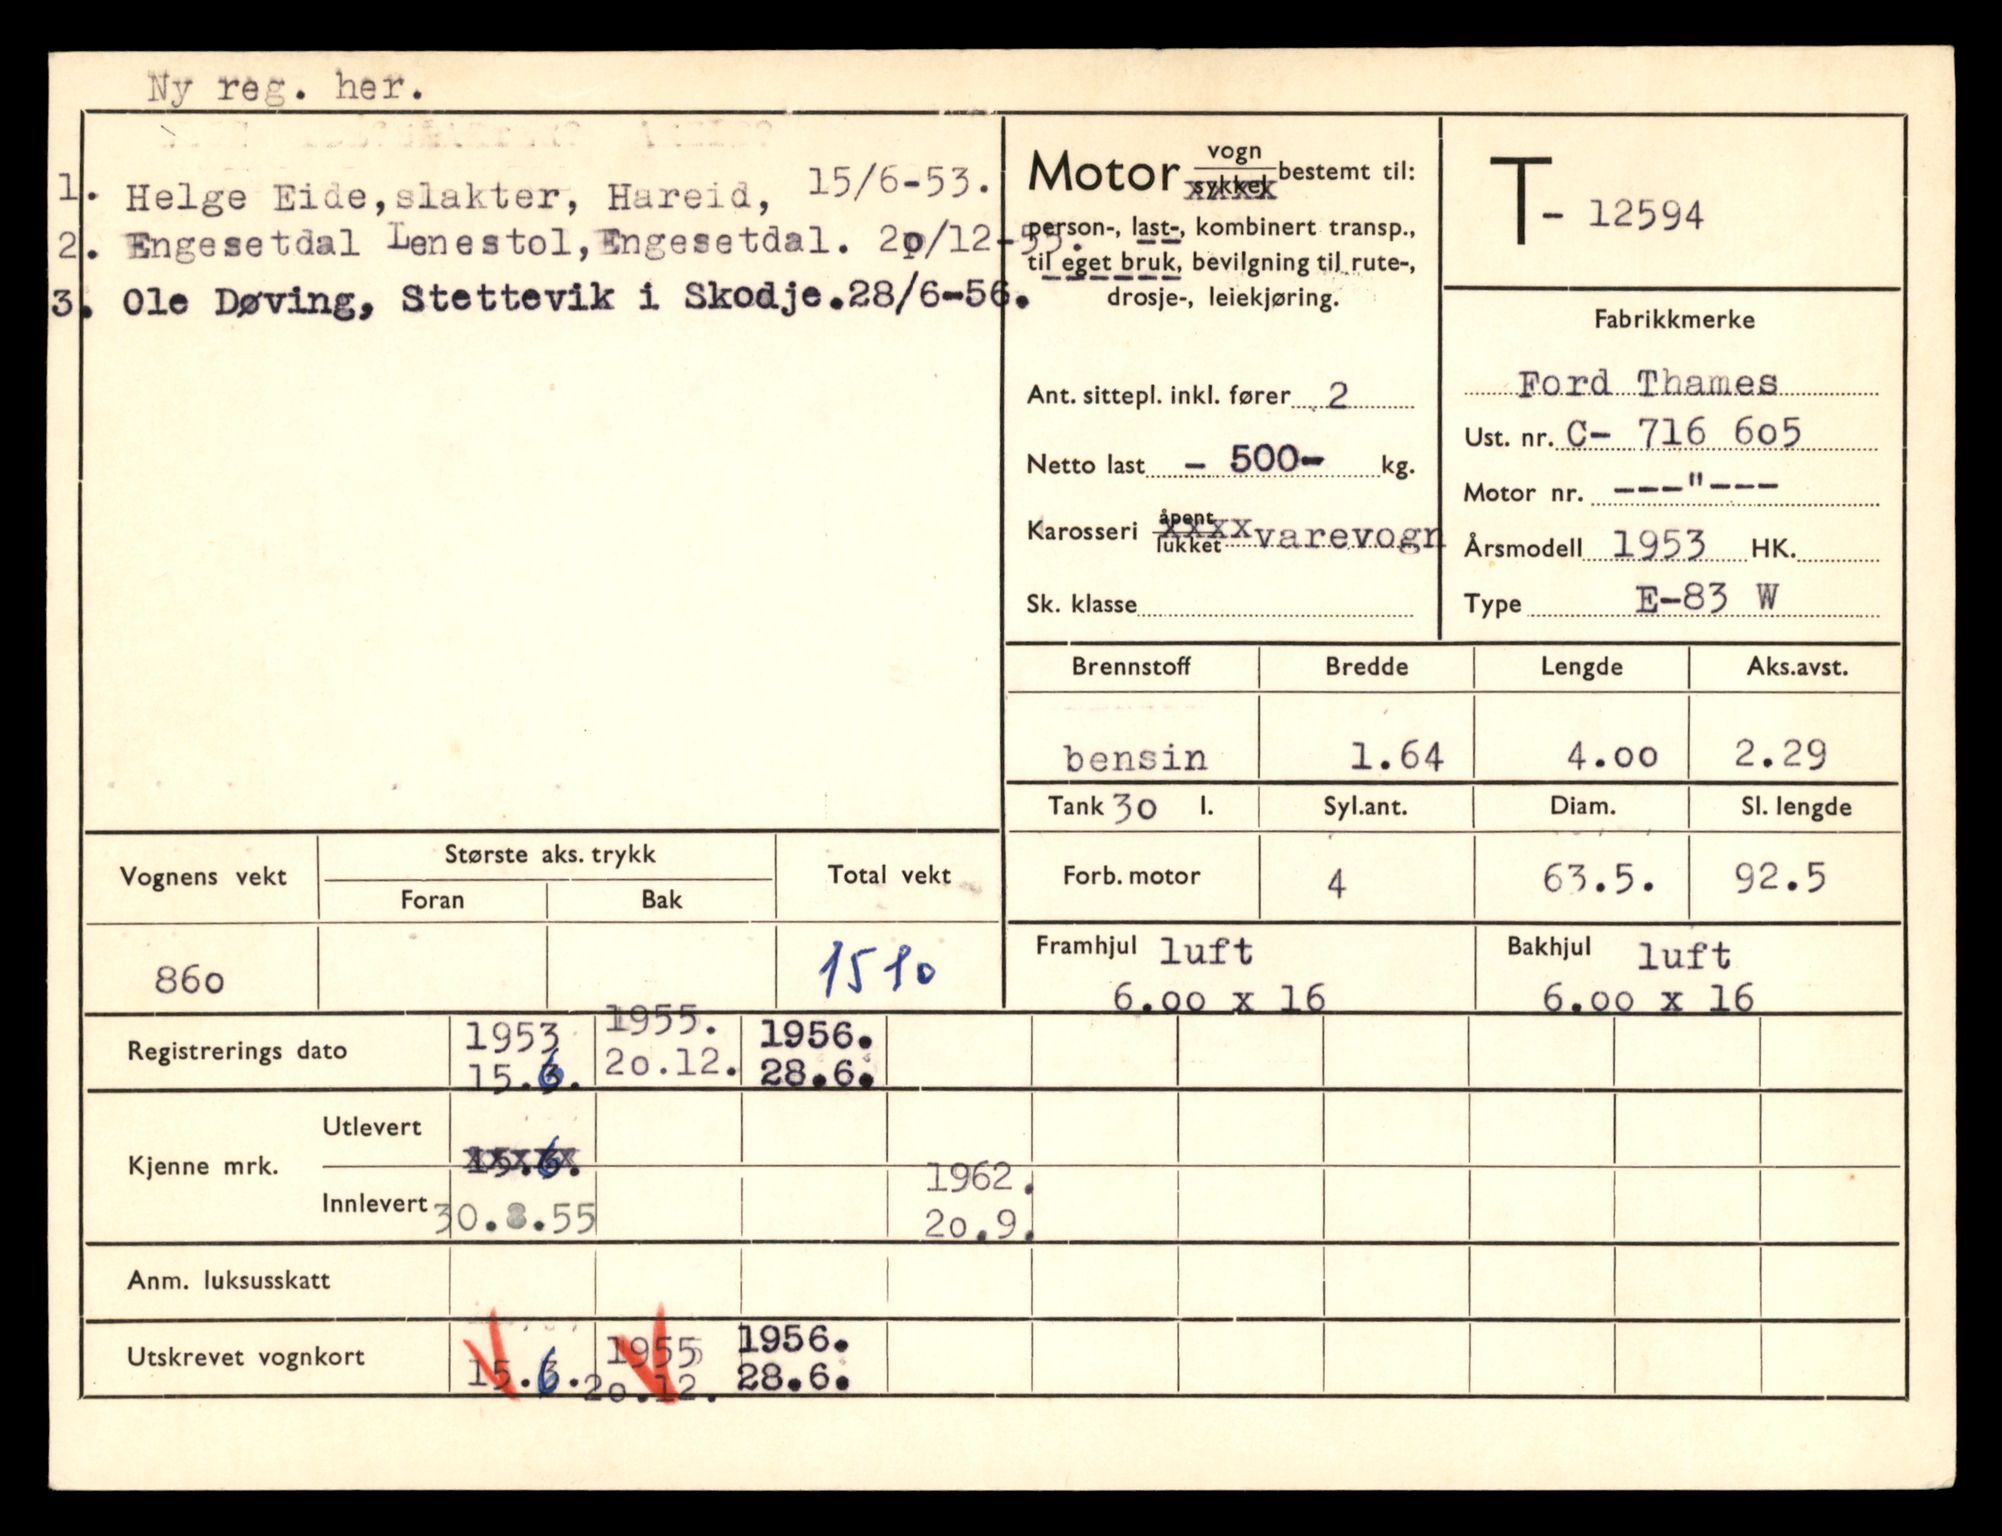 Ny reg. her.
1. Helge Eide, slakter, Hareid, 15/6-53.
2. Engesetdal Lenestol, Engesetdal. 20/12-55.
3. Ole Døving, Stettevik i Skodje. 28/6-56.
Motor vogn/sykkel bestemt til:
person-, last-, kombinert transp.,
til eget bruk, bevilgning til rute-,
drosje-, leiekjøring.
Ant. sittepl. inkl. fører 2
Netto last - 500- kg.
Karosseri åpent/lukket varevogn
Sk. klasse
T- 12594
Fabrikkmerke
Ford Thames
Ust. nr. C- 716 605
Motor nr. ---"---
Årsmodell 1953 HK.
Type E-83 W
Brennstoff Bredde Lengde Aks.avst.
bensin 1.64 4.00 2.29
Tank 30 l. Syl.ant. Diam. Sl. lengde
Forb. motor 4 63.5. 92.5
Framhjul luft Bakhjul luft
6.00 x 16 6.00 x 16
Vognens vekt Største aks. trykk Total vekt
Foran Bak
860 1510
Registrerings dato 1953 1955. 1956.
15.6. 20.12. 28.6.
Kjenne mrk. Utlevert 15.6.
Innlevert 30.8.55 1962.
20.9.
Anm. luksusskatt
Utskrevet vognkort 1955 1956.
15.6. 20.12. 28.6.